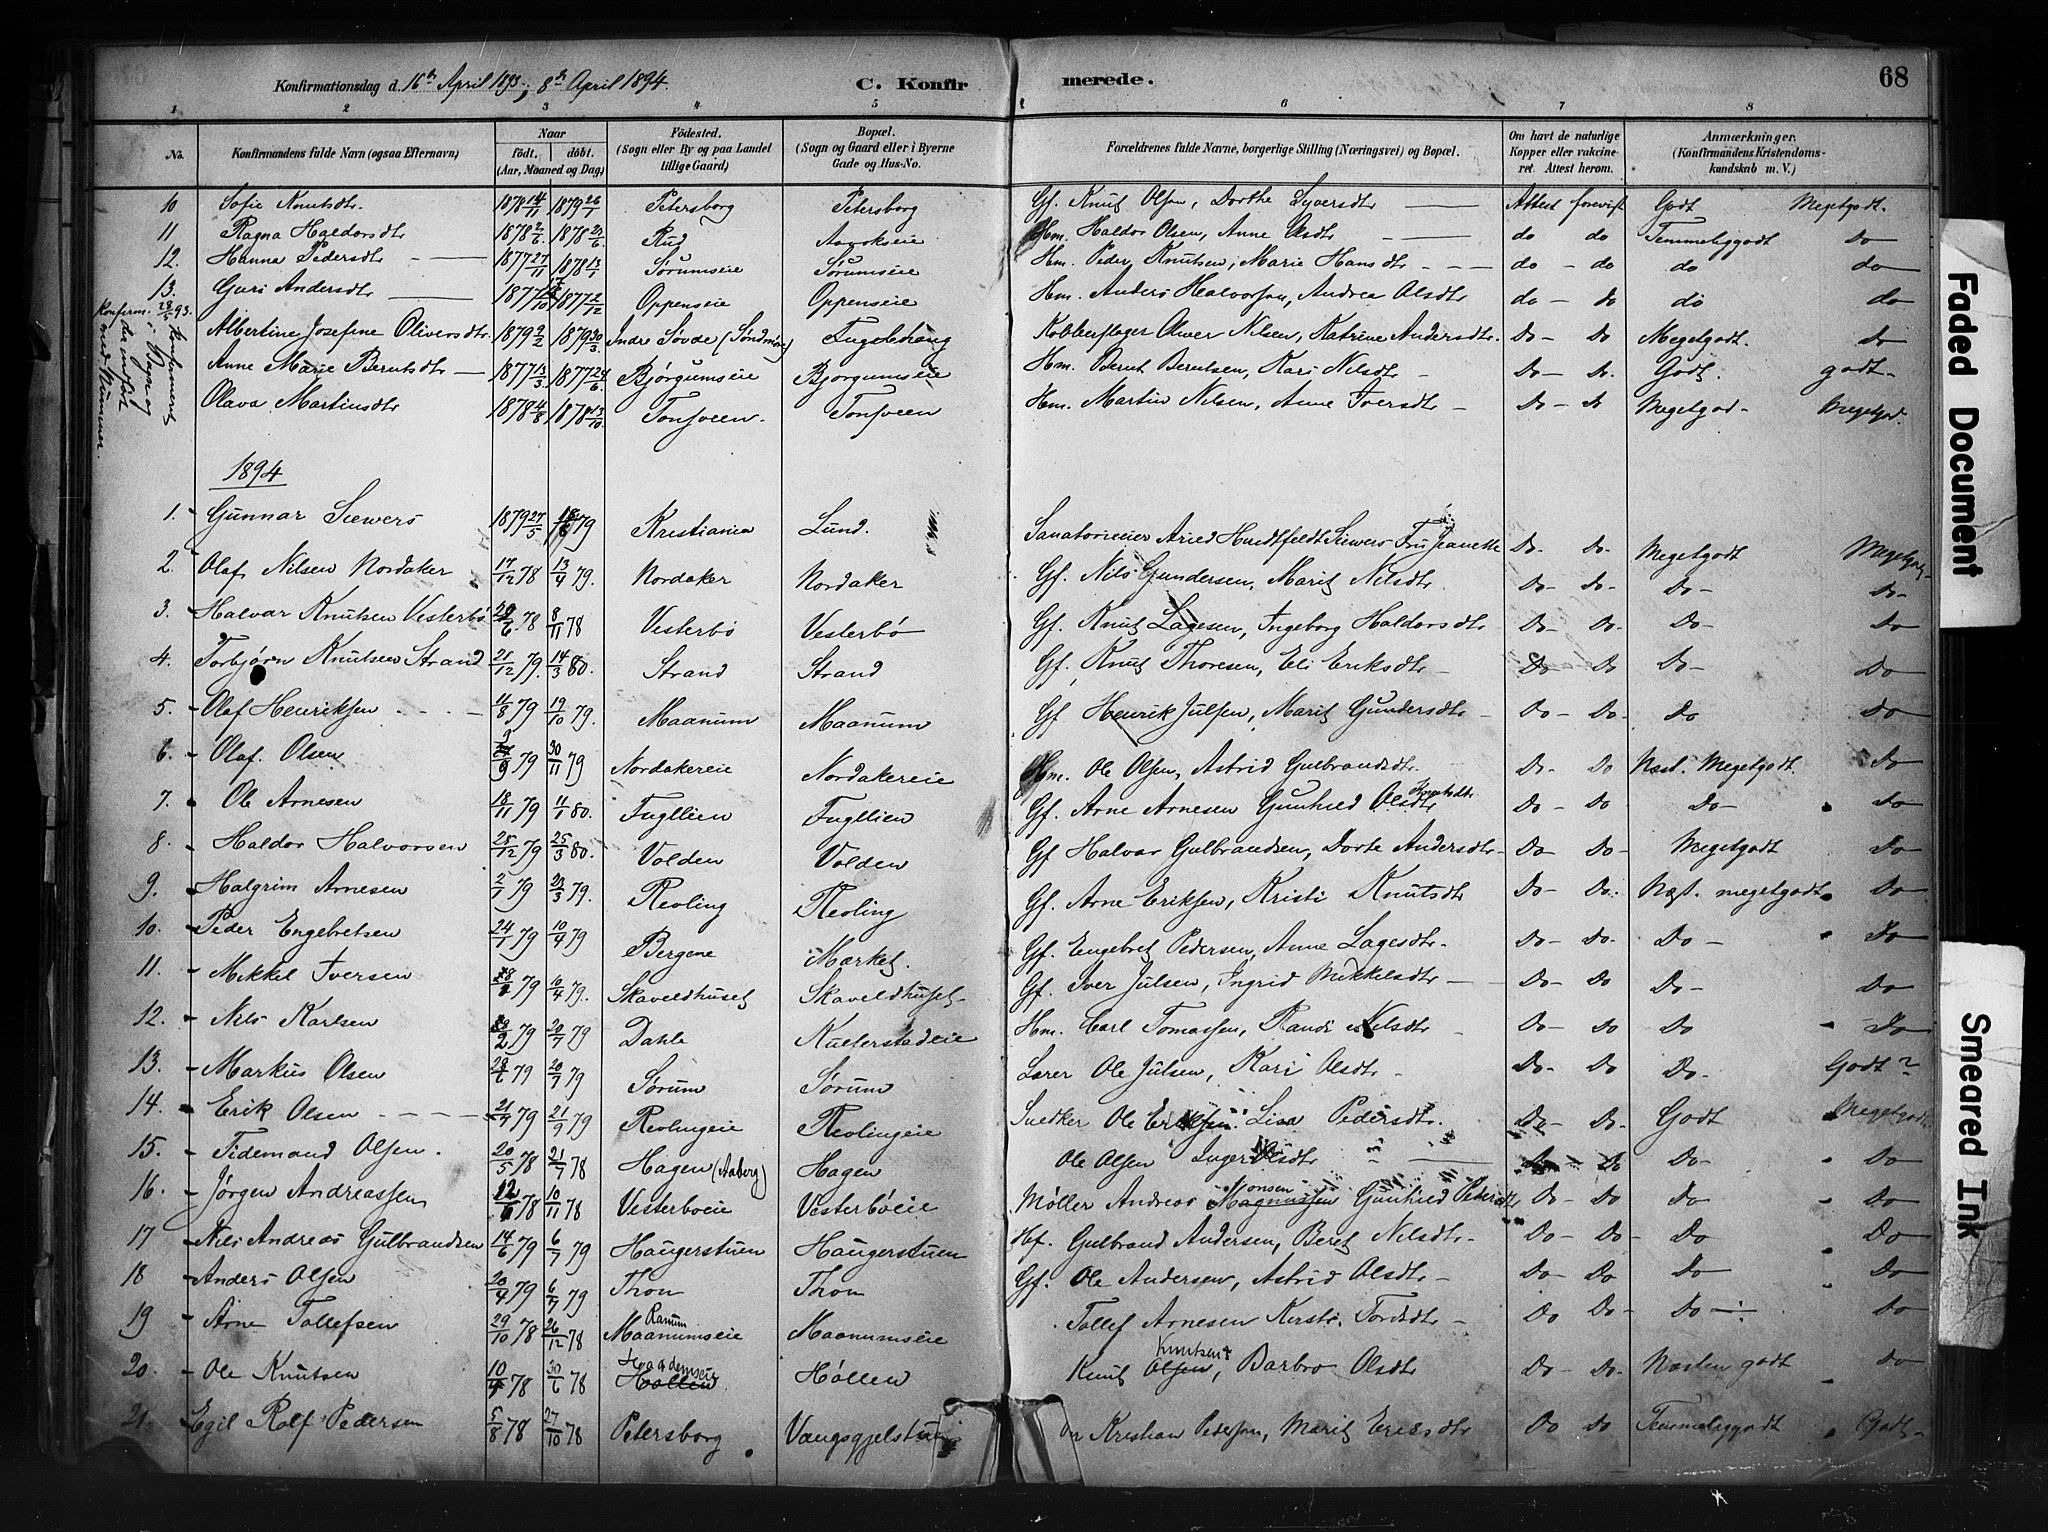 Konfirmationsdag d. 16th April 1893, 8th April 1894. C. Konfirmerede. 68
1 2 3 4 5 6 7 8
No. Konfirmandens fulde Navn (ogsaa Efternavn) Naar født. døbt. (Aar, Maaned og Dag) Födested. (Sogn eller By og paa Landet tillige Gaard) Bopæl. (Sogn og Gaard eller i Byerne Gade og Hus-No. Forældrenes fulde Navne, borgerlige Stilling (Næringsvei) og Bopæl. Om havt de naturlige Kopper eller vakcineret. Attest herom. Anmærkninger. (Konfirmandens Kristendomskundskab m. V.)
10 Sofie Knutsdtr 1878 14/11 1879 26/1 Petersborg Petersborg Gf. Knut Olsen, Dorthe Syversdtr Attest forevist Godt Megetgodt.
11 Ragna Haldorsdtr 1878 2/6 1878 /6 Rud Haldor Olsen, Anne Olsdtr do do Temmeliggodt Do
12. Hanna Pedersdtr 1877 27/11 1878 13/1 Sørumseie Sørumseie Hm. Peder Knutsen, Marie Hansdtr do do do do
13. Guri Andersdtr 1877 1877 2/12 Oppenseie Oppenseie Hm. Anders Halvorsen, Andrea Olsdtr do do do do
Konfirm. 28/5 93.
Albertine Josefine Oliversdtr 1879 2/2 1879 30/3 Indre Sövde (Söndmöre) Fuglehaug Kobberslager Oliver Nilsen, Katrine Andersdtr. Do Do Megetgodt. Do
Anne Marie Berntsdtr 1877 13/3 1877 24/6 Bjørgumseie Bjørgumseie Hm. Bernt Berntsen, Kari Nilsdtr Do Do Godt. godt
Olava Martinsdtr 1878 4/8 1878 13/10 Tonsveen. Tonsveen Hm. Martin Nilsen, Anne Iversdtr Do Do Megetgod Megetgod.
1894
1. Gunnar Siewers 1879 27/5 79 Kristiania Lund. Siewers Do Do Megetgodt
2. Olaf Nilsen Nordaker 17/12 78 13/4 79. Nordaker Nordaker Gf. Nils Gundersen, Marit Nilsdtr. Do Do Do Do
3. Halvar Knutsen Vesterbø /6 78 8/11 78 Vesterbö Vesterbö Gf. Knut Lagesen, Ingeborg Haldorsdtr Do Do Do Do
4. Torbjørn Knutsen Strand 21/12 79. 14/3 80. Strand Strand Gf. Knut Thoresen, Eli Eriksdtr Do Do Do Do
5. Olaf Henriksen 11/8 79 19/10 79. Maanum Maanum Gf Henrik Julsen, Marit Gundersdtr Do Do Do Do
6. Olaf. Olsen /9 79 30/11 79 Nordakereie Nordakereie Hm. Ole Olsen, Astrid Gulbrandsdtr. Do Do Næst. Megetgodt. Do
7. Ole Arnesen 18/11 79 11/1 80. Fugllien Fugllien Gf. Arne Arnesen Gunhild Olsdtr Do Do Do Do
8. Haldor Halvorsen 25/12 79 25/3 80. Volden Volden Gf Halvar Gulbrandsen, Dorte Andersdtr Do Do Megetgodt Do
9. Halgrim Arnesen 2/1 79 23/3 79. Revling Revling Gf. Arne Eriksen, Kristi Knutsdtr Do Do Næst. megetgodt Do
10. Peder Engebretsen 24/1 79 10/4 79 Bergene Market. Gf. Engebret Pedersen, Anne Lagesdtr Do Do Do Do
11. Mikkel Iversen 79 10/4 79. Skaveldhuset Skaveldhuset Gf. Iver Julsen, Ingrid Mikkelsdtr Do Do Do Do
12. Nils Karlsen /2 79 20/7 79 Dahle Kueterstadeie Hm. Carl Tomassen, Randi Nilsdtr Do Do Do Do
13. Markus Olsen 28/6 79 20/7 79 Sørum Sørum Lærer Ole Julsen, Kari Olsdtr Do Do Do Godt?
14. Erik Olsen 79 21/9 79 Revlingeie Revlingeie Snedker Ole Eriksen. Lisa Pedersdtr. Do Do Godt Megetgodt
15. Tidemand Olsen. 20/5 78 21/7 78 Hagen (Aaberg) Hagen Ole Olsen Inger Olsdtr Do Do Do Do
16. Jørgen Andreassen 12/ 78 10/11 78 Vesterboeie Vesterbøeie Møller Andreas Magnussen onsen Gunhild Pedersdtr Do Do Do Do
17 Nils Andreas Gulbrandsen 14/6 79 6/7 79 Haugerstuen Haugerstuen Hf. Gulbrand Andersen, Beret Nilsdtr Do Do Do Do
18 Anders Olsen 20/4 79 6/7 79 Thon Thon Gf. Ole Andersen, Astrid Olsdtr Do Do Do Do
19 Arne Tollefsen 29/10 78 26/12 78 Ranum Maanumseie Maanumseie Tollef Arnesen Kersti Tordsdtr Do Do Do Do
20. Ole Knutsen 10/ 78 30/6 78 Høllen Høllen Knut Olsen Knutsen, Barbro Olsdtr Do Do Næsten godt Do
21. Egil Rolf Pedersen 5/8 78 27/10 78 Petersborg Vangsgjelstuen Kristian Pedersen, Marit Eriksdtr Do Do Temmeliggodt Godt
Faded Document
Smeared Ink